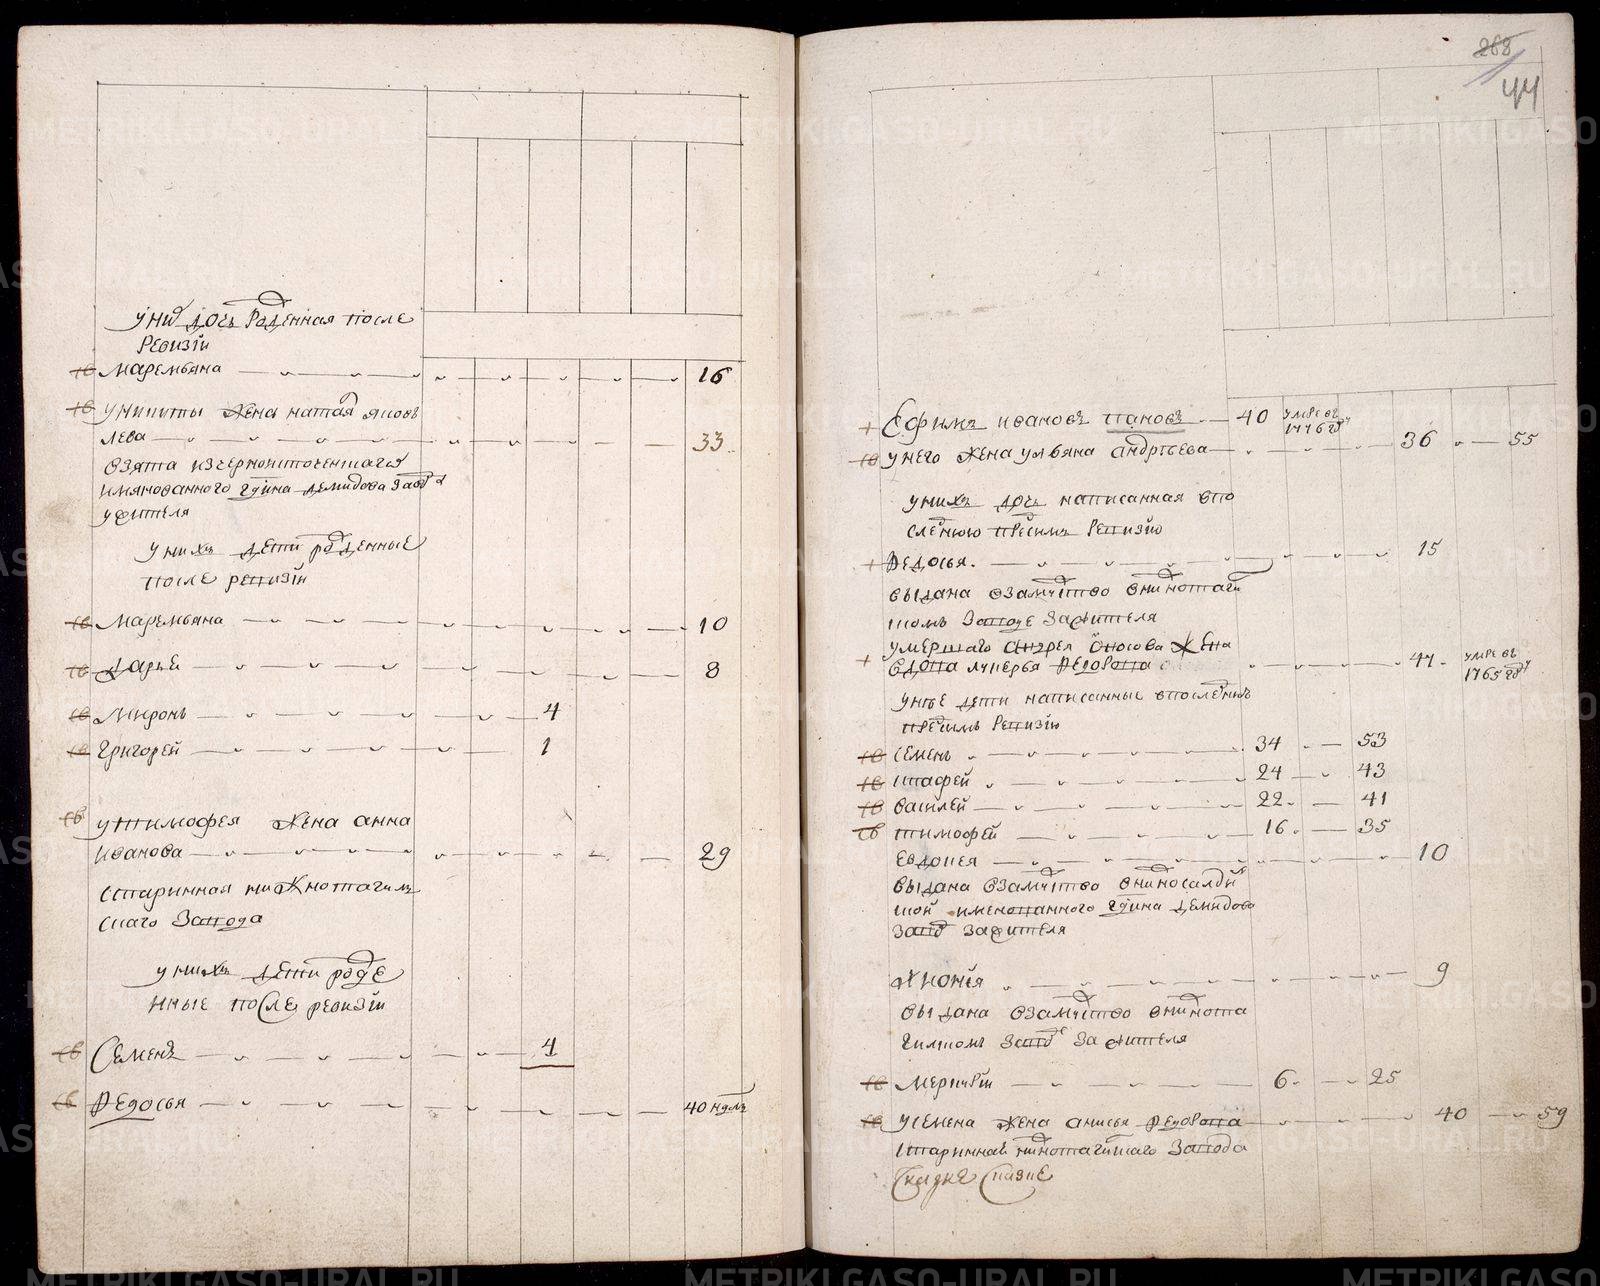 у них дочь рожденная после
ревизiи
Маремьяна 16
у Никиты жена Наталья Яковлева 33
взята из
имянованного гдина Демидова завода
жителя
у них дети рожденные
после ревизiи
Маремьяна 10
Дарья 8
Миронъ 4
Григорей 1
у Тимофея жена Анна
Иванова 29
старинная Нижнотагилъ
скаго завода
у них дети рожде
нные после ревизiи
Семенъ 4
Федосья 40 недль
268
44
Ефимъ Ивановъ Пановъ 40 умре въ 1776 году
у него жена Ульяна Андреева 36 55
у нихъ дочь написанная в по
следнюю пред симъ ревизiю
Федосья 15
выдана в замужство в Нижнотаги
лскомъ заводе за жителя
умершаго Андрея жена
вдова Лукерья Федорова 47 умре въ 1765 году
у нее дети написанные в последнюю
пред симъ ревизiю
Семенъ 34 53
24 43
Василей 22 41
Тимофей 16 35
Евдокея 10
выдана в замужство в Нижносалдин
ской именованного гдина Демидова
завод за жителя
9
выдана в замужство в Нижнота
гилскомъ заводе за жителя
Меркулiй 6 25
у Семена жена Анисья Федорова 40 59
стариннаѣ Нижнотагилскаго завода
METRIKI.GASO-URAL.RU